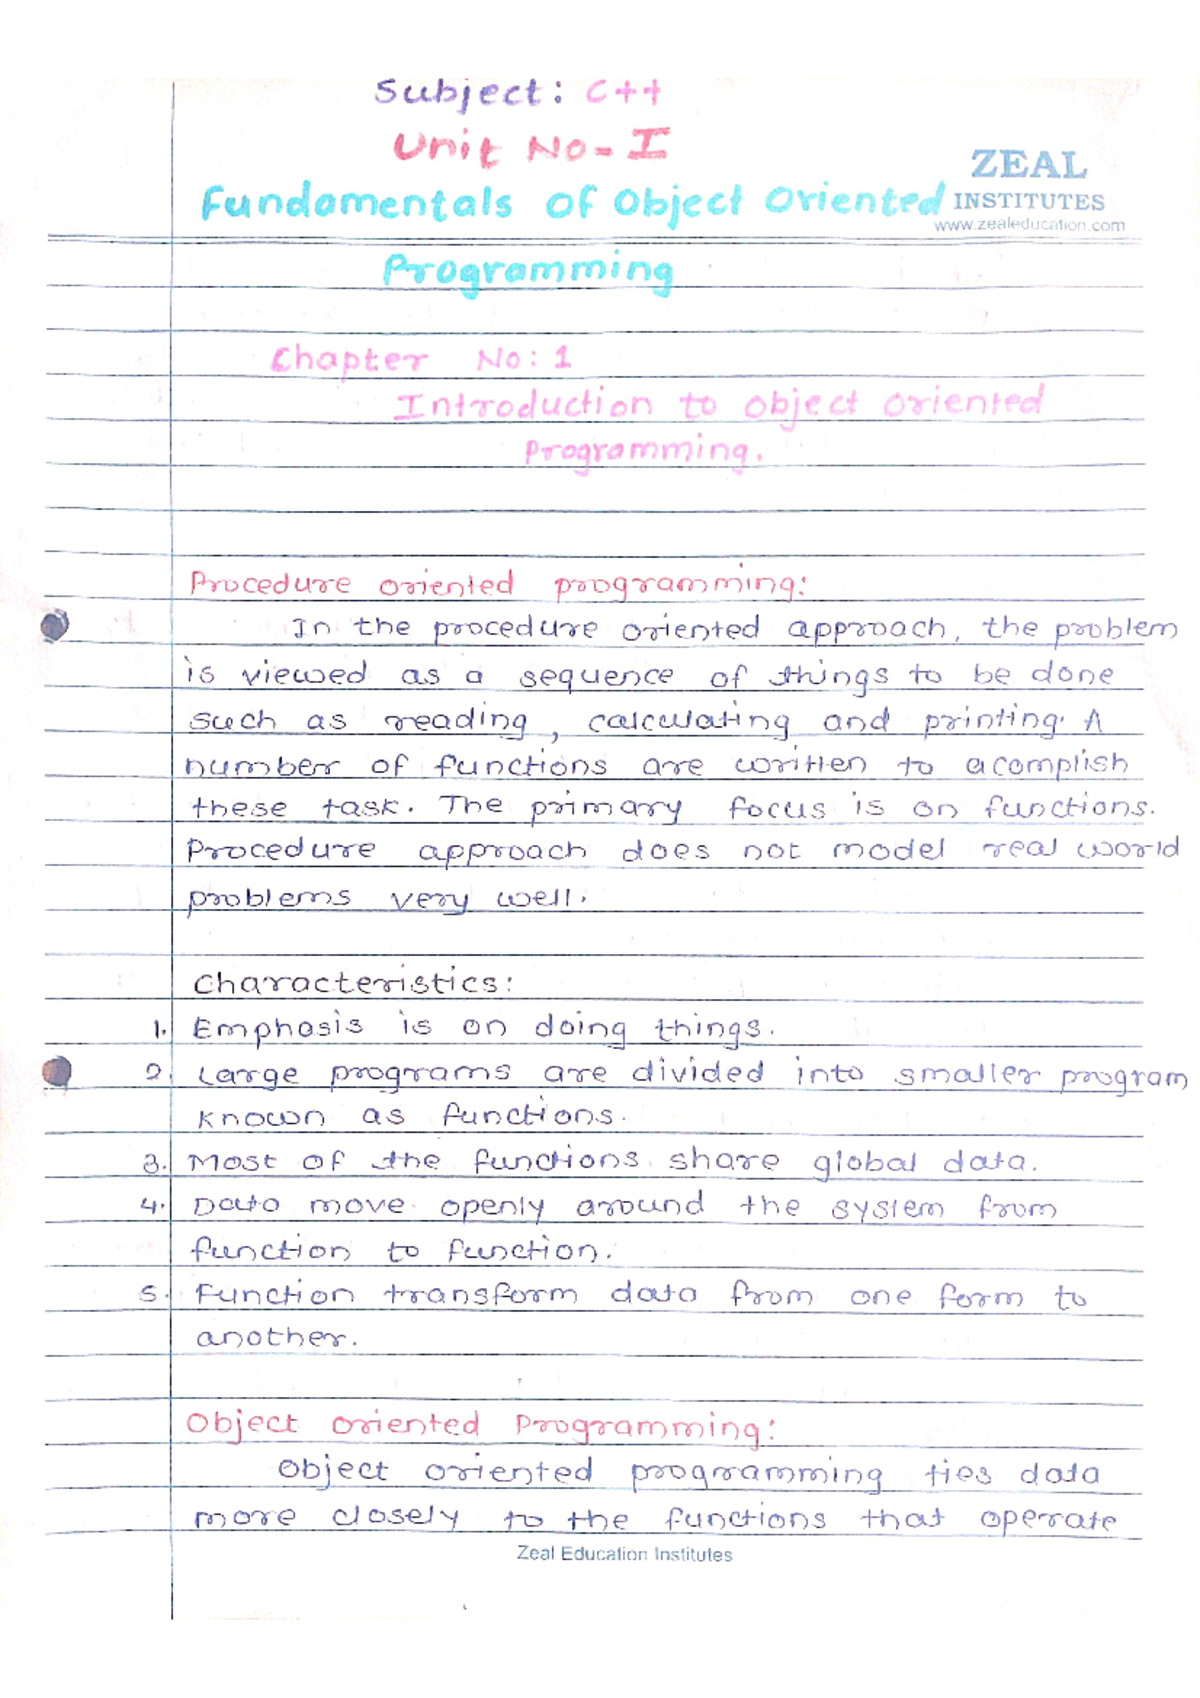 Subject: C++
Unit No-I
ZEAL
Fundamentals of Object Oriented
INSTITUTES
www.zealeducation.com
Programming
Chapter No: 1
Introduction to object oriented
Programming.
Procedure oriented programming:
In the procedure oriented approach, the problem
is viewed as a sequence of things to be done
such as reading, calculating and printing. A
number of functions are written to acomplish
these task. The primary focus is on functions.
Procedure approach does not model real world
problems very well.
Characteristics:
1. Emphasis is on doing things.
2. Large programs are divided into smaller program
known as functions.
3. Most of the functions share global data.
4. Data move openly around the system from
function to function.
5. Function transform data from one form to
another.
Object oriented Programming:
Object oriented programming ties data
more closely to the functions that operate
Zeal Education Institutes